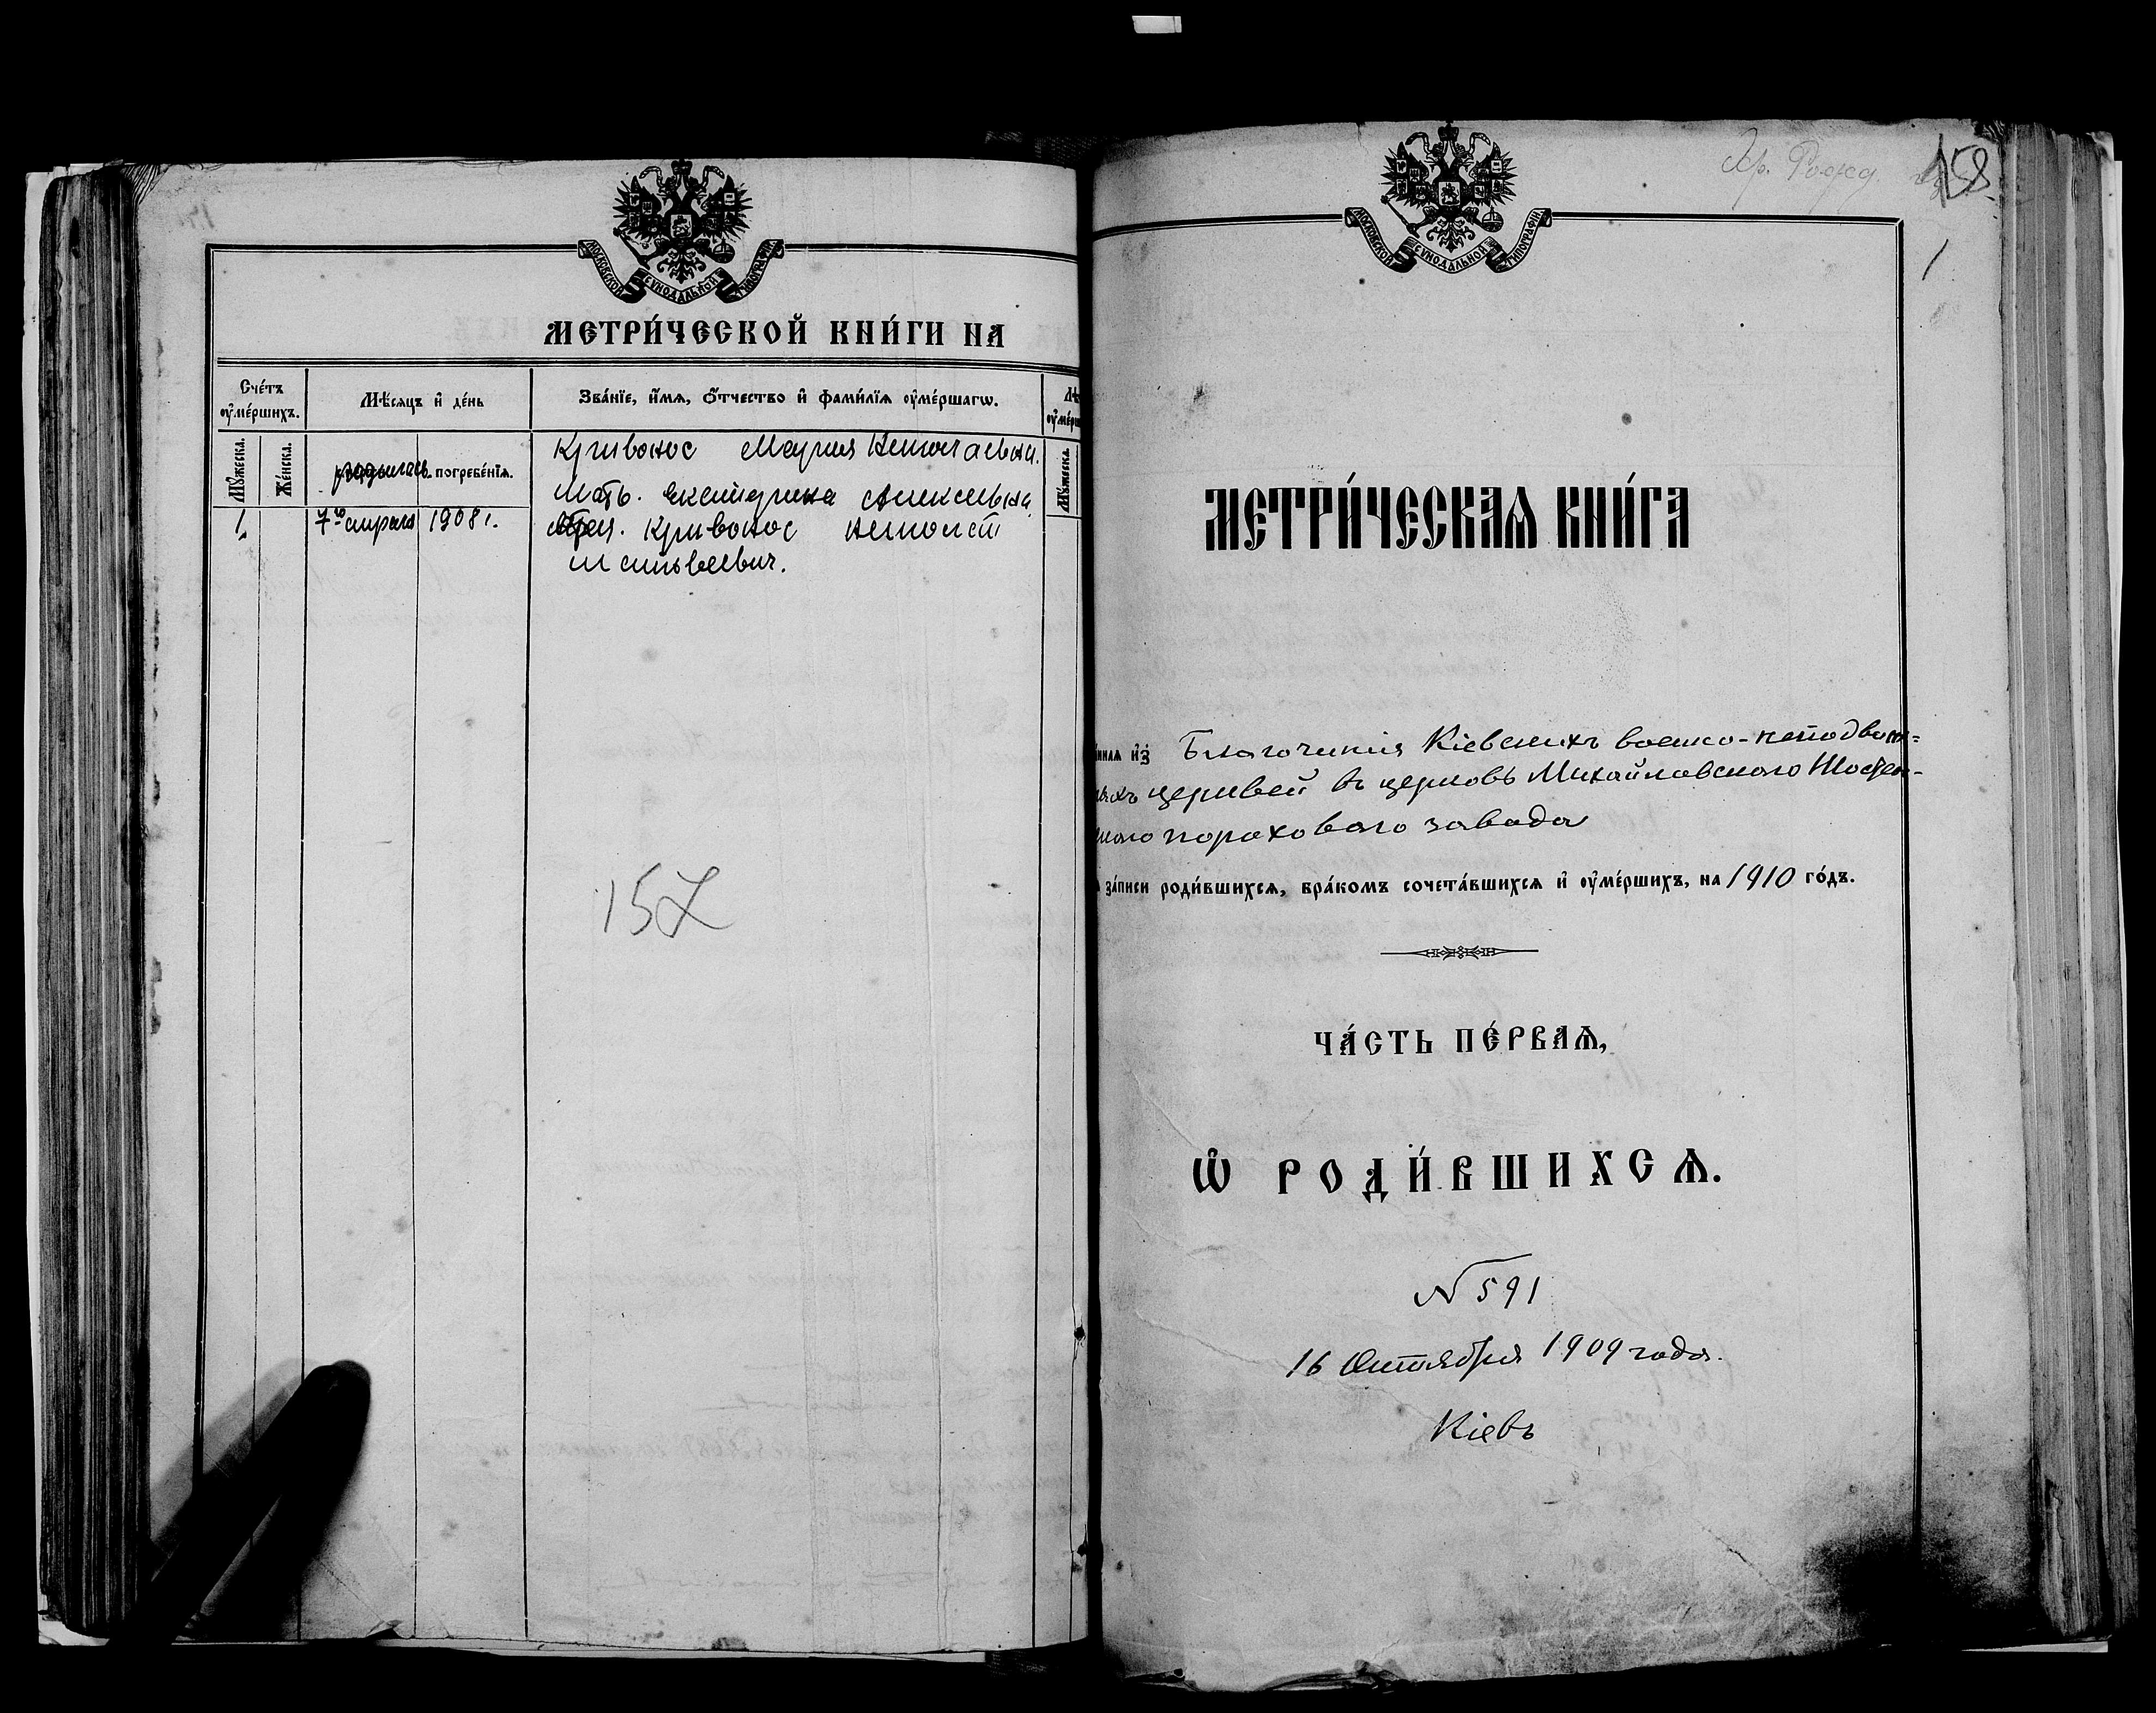 МОСКОВСКОЙ СѴНОДАЛЬНОЙ ТИПОГРАФІИ
МЕТРИ́ЧЕСКОЙ КНИ́ГИ НА
Сче́тъ оу҆ме́ршихъ.
Мѣ́сяцъ и҆ де́нь
Зва́нїе, и҆́мѧ, ѻ҆́тчество и҆ фами́лїѧ оу҆ме́ршагѡ.
Лѣ
оу҆ме́рш
Мꙋ́жеска.
Же́нска.
родилась погребе́нїѧ.
Мꙋ́жеска.
Кривонос Мария
Мать. Екатерина
1. 7го апреля 1908 г.
Кривонос
157
Хр. Рожд. 158
1
МОСКОВСКОЙ СѴНОДАЛЬНОЙ ТИПОГРАФІИ
МЕТРИ́ЧЕСКАѦ КНИ́ГА
аннаѧ и҆з̾ Благочинія Кіевскихъ военно-неподвиж=
ныхъ церквей въ церковь Михайловскаго Шостен-
скаго порохового завода
за́писи роди́вшихсѧ, бра́комъ сочета́вшихсѧ и҆ оу҆ме́ршихъ, на 1910 го́дъ.
ЧА́СТЬ ПЕ́РВАѦ,
Ѡ҆ РОДИ́ВШИХСѦ.
№ 591
16 Октября 1909 года.
Кіевъ